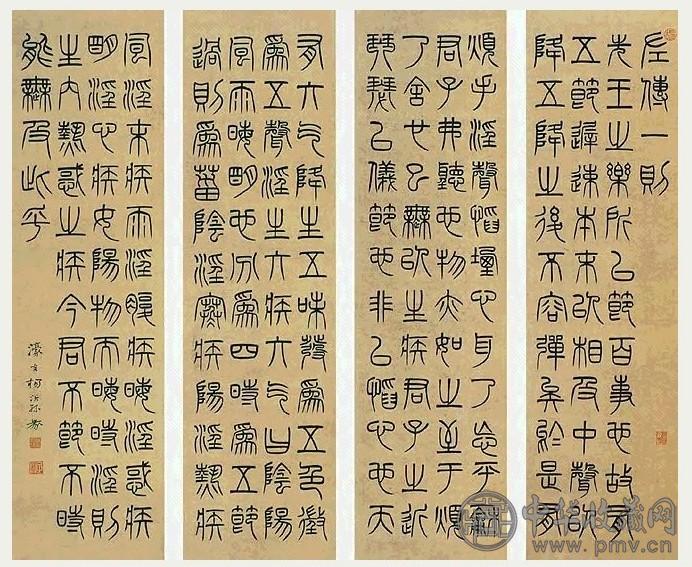 左傳一則
先王之樂所以節百事也故有
五節遲速本末以相及中聲以
降五降之後不容彈矣於是有
煩手淫聲慆堙心耳乃忘平龢
君子弗聽也物亦如之至于煩
乃舍也已無以生疾君子之近
琴瑟以儀節也非以慆心也天
有六气降生五味發為五色徵
為五聲淫生六疾六气曰陰陽
風雨晦明也分為四時為五節
過則為菑陰淫寒疾陽淫熱疾
風淫末疾雨淫腹疾晦淫惑疾
明淫心疾女陽物而晦時淫則
生內熱惑之疾今君不節不時
能無及此乎
濠叟楊沂孫篆
中华收藏网
www.pmv.cn